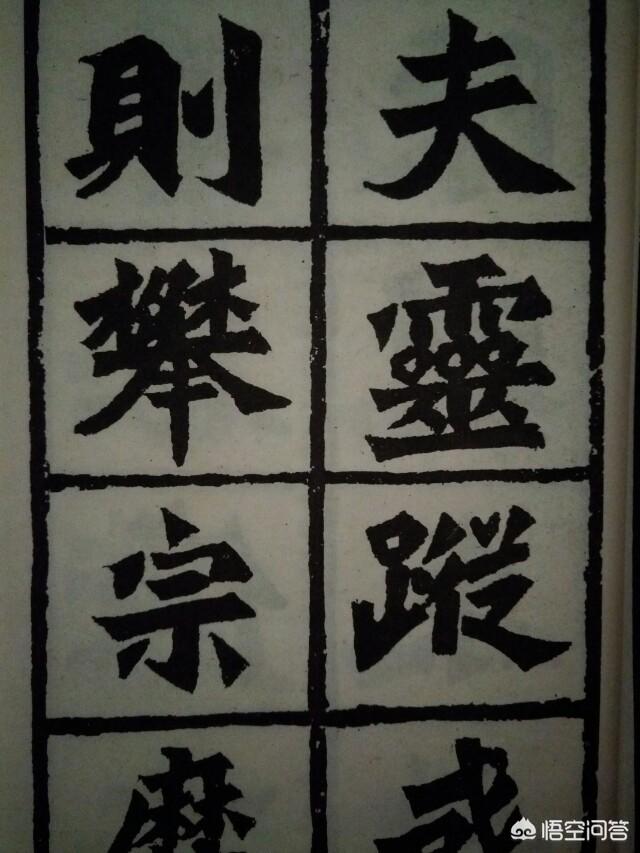 夫靈蹤
則攀宗
悟空问答